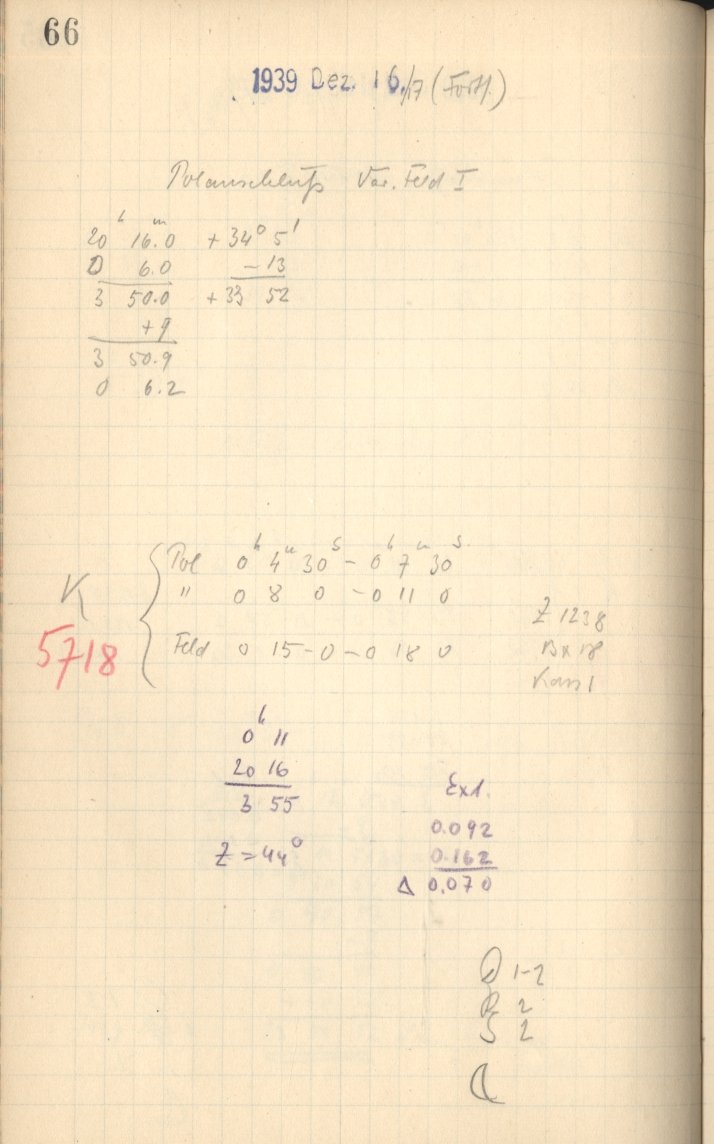 66
1939 Dez. 16./17 (Forts.)
Polanschluß Var. Feld I
20h 16m.0 +34° 5'
0 6.0 -13
3 50.0 +33 52
+9
3 50.9
0 6.2
Pol 0h 4m 30s - 0h 7m 30s
" 0 8 0 - 0 11 0
K
5718
Feld 0 15-0-0 18 0
Z 1238
Kass 1
0h 11
20 16
3 55
Z = 44°
Ext.
0.092
0.162
Δ 0.070
D 1-2
R 2
S 2